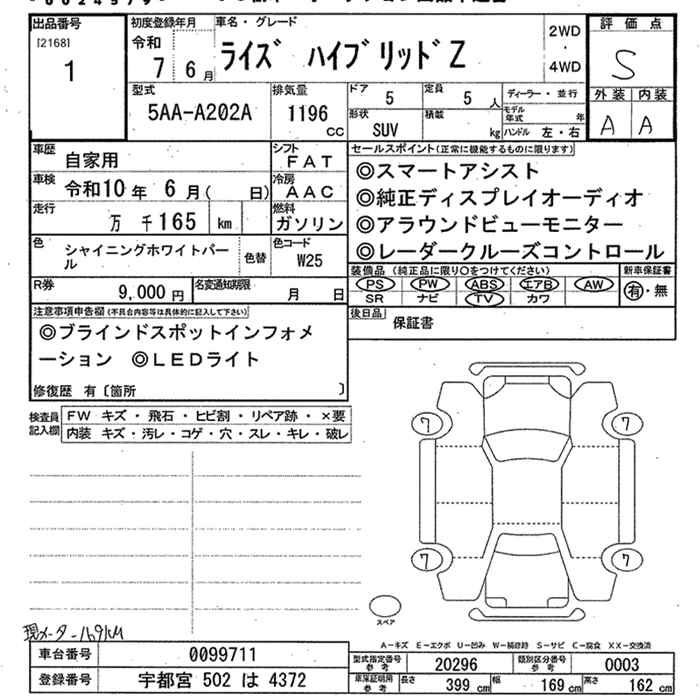 出品番号
[2168]
1
初度登録年月
令和
7 6 月
車名・グレード
ライズ ハイブリッドZ
2WD
・
4WD
評価点
S
外装 内装
A A
型式
5AA-A202A
排気量
1196
CC
ドア
5
定員
5 人
形状
SUV
積載
kg
ディーラー・並行
モデル年式 年
ハンドル 左・右
車歴
自家用
シフト
FAT
車検
令和10 年 6 月( 日)
冷房
AAC
走行
万 千165 km
燃料
ガソリン
色
シャイニングホワイトパール
色替
色コード
W25
R券
9,000 円
名変通知期限
月 日
セールスポイント(正常に機能するものに限ります)
◎スマートアシスト
◎純正ディスプレイオーディオ
◎アラウンドビューモニター
◎レーダークルーズコントロール
装備品 (純正品に限り○をつけてください)
PS PW ABS エアB AW
SR ナビ TV カワ
新車保証書
有・無
後日品
保証書
注意事項申告欄(不具合内容等は具体的に記入して下さい)
◎ブラインドスポットインフォメ
ーション ◎LEDライト
修復歴 有〔箇所 〕
検査員
記入欄
FW キズ・飛石・ヒビ割・リペア跡・×要
内装 キズ・汚レ・コゲ・穴・スレ・キレ・破レ
7
7
7
7
スペア
現メーター169KM
A-キズ E-エクボ U-凹み W-補修跡 S-サビ C-腐食 XX-交換済
車台番号 0099711
登録番号 宇都宮 502 は 4372
型式指定番号
参考
20296
類別区分番号
参考
0003
車庫証明用
参考
長さ 399 cm 幅 169 cm 高さ 162 cm